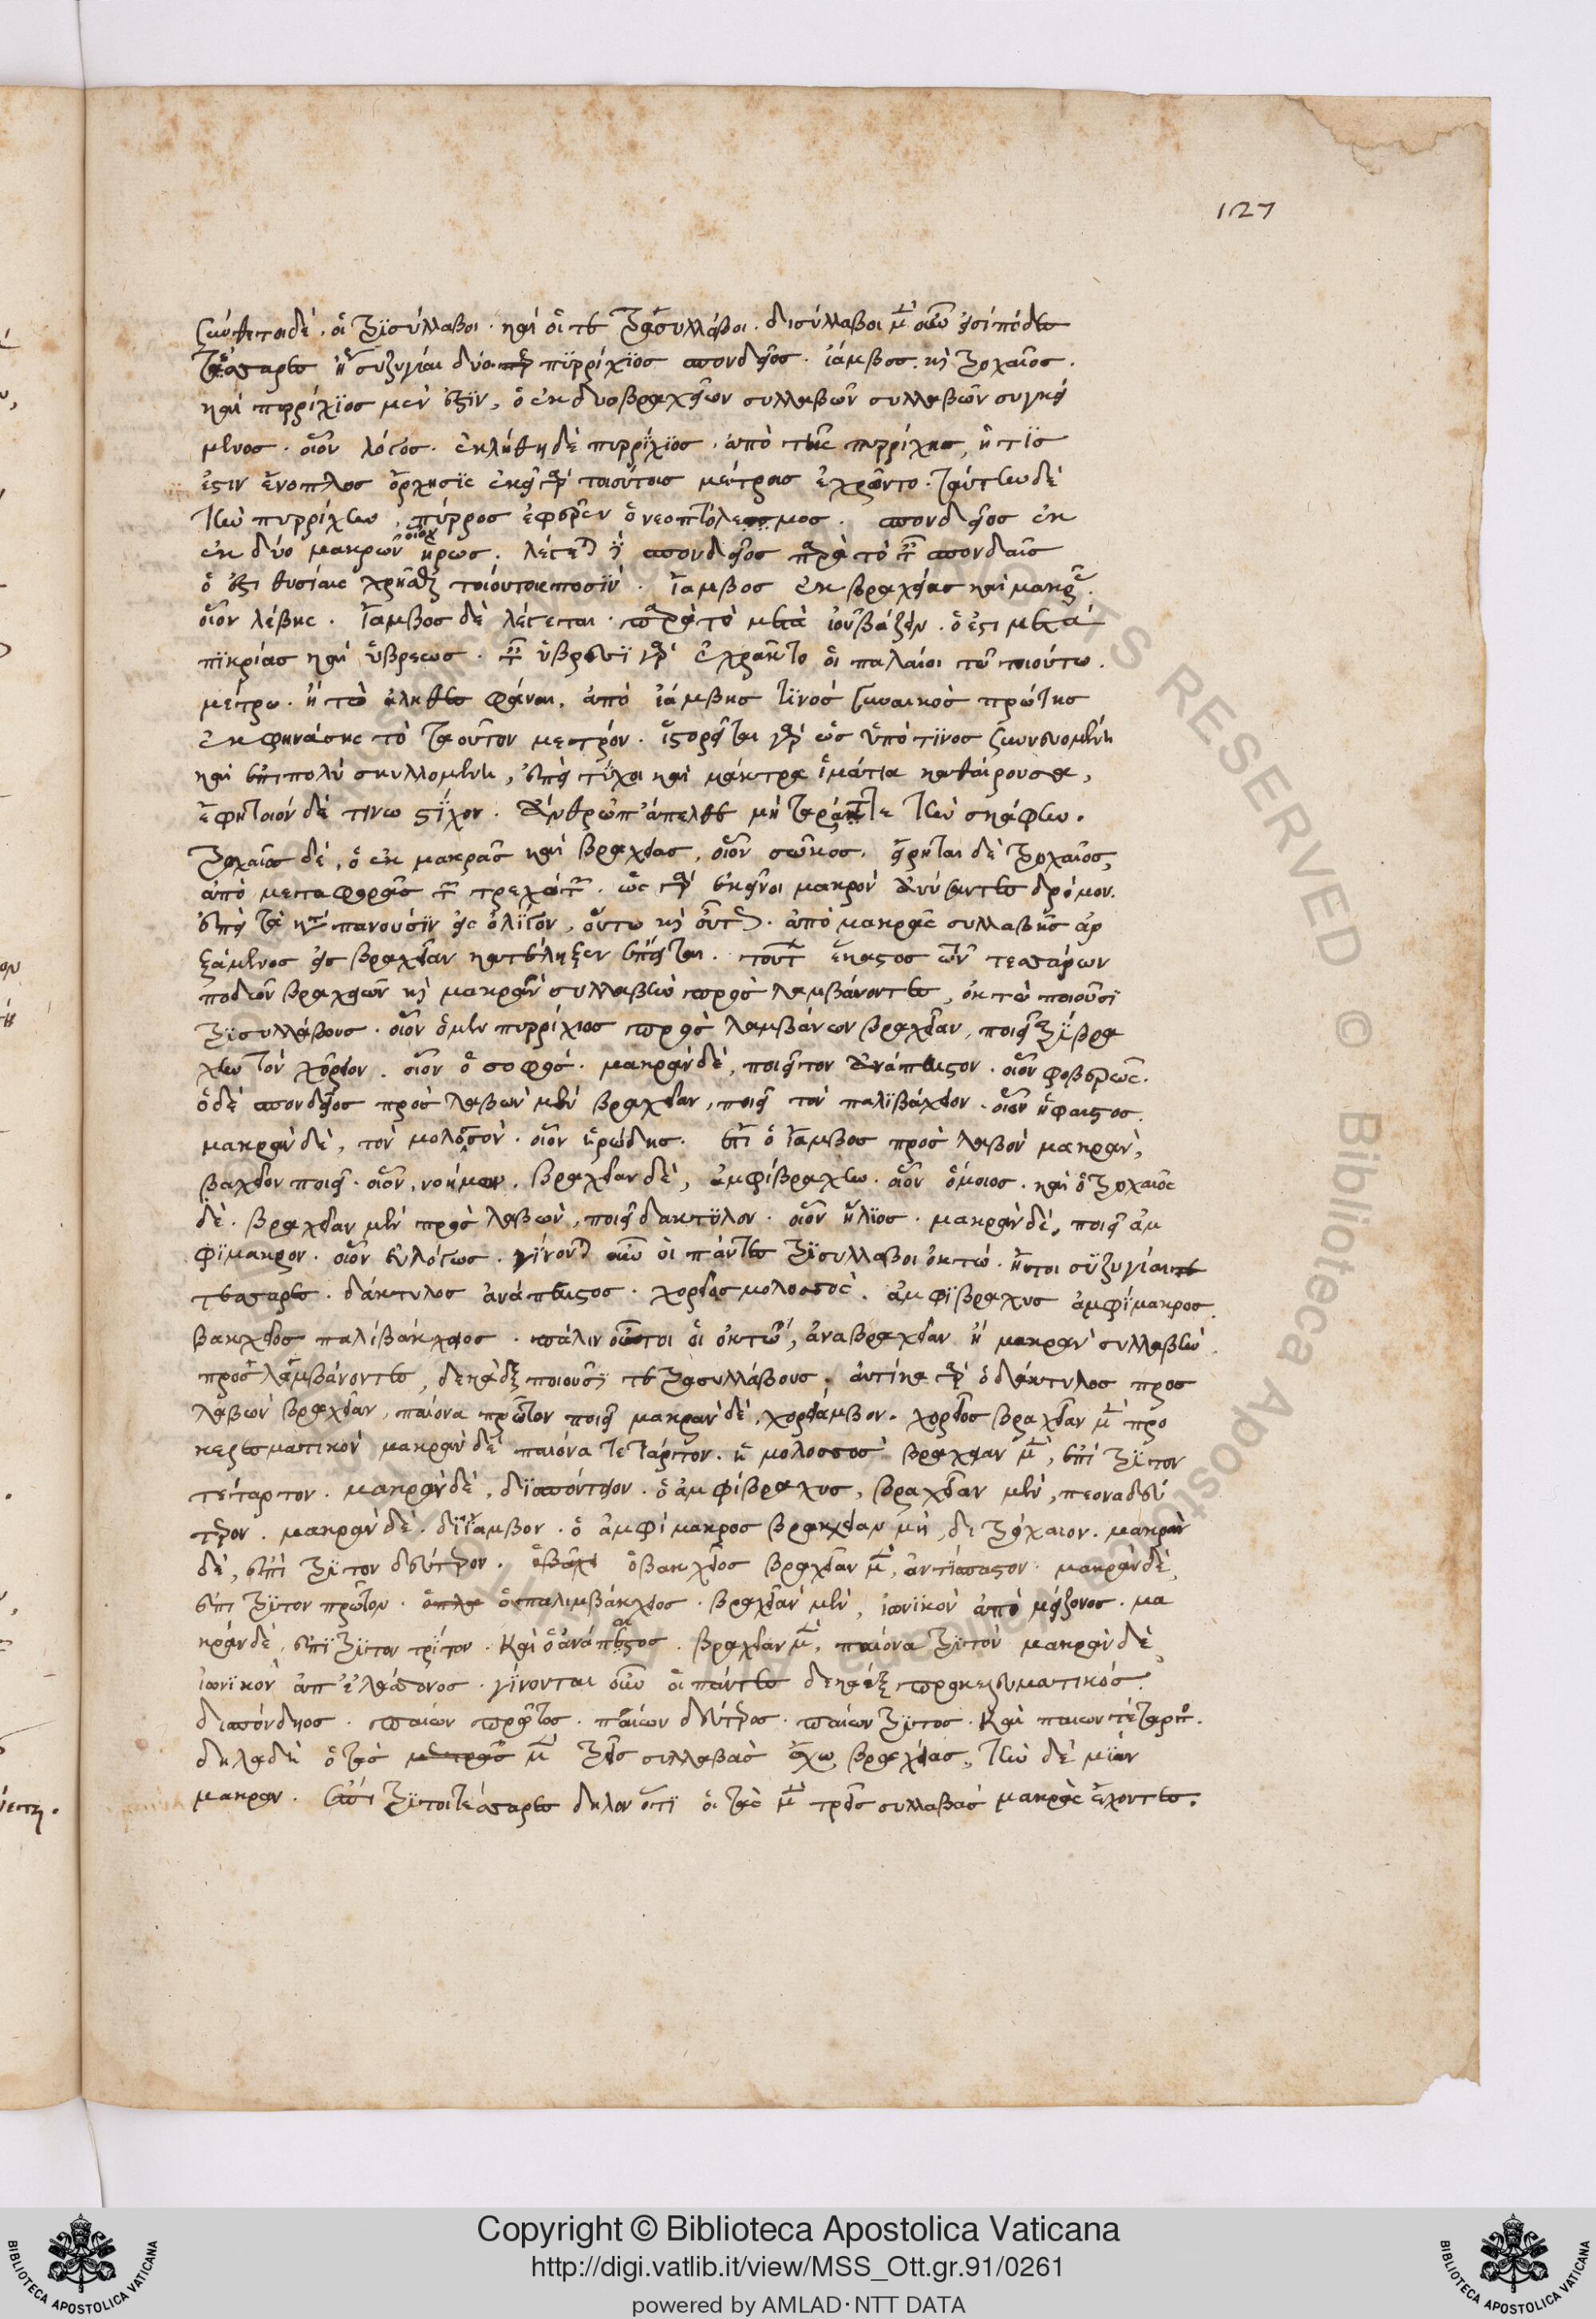 127
σύνθετοι δὲ, οἱ τρϊσύλλαβοι. καὶ οἱ τετρασυλλάβοι. δισύλλαβοι μὲν οὖν εἰσὶ πόδες
τέσσαρες ἢ συζυγίαι δύο πϋρρίχϊος σπονδεῖος. ἰάμβος. καὶ τροχαῖος.
καὶ πυρρίχϊος μεν ἐστϊν, ὁ ἐκ δυο βραχείων συλλαβῶν συλλαβῶν συγκεί
μενος. οἷον λόγος. ἐκλήθη δὲ πυρρίχϊος. ἀπὸ τῆς πυρρίχης, ἥ τϊς
ἐστιν ἔνοπλος ὄρχησϊς ἐκεῖ γὰρ τοιούτοις μέτροις ἐχρῶντο. ταύτην δὲ
τὴν πυρρίχην, πύρρος ἐφεῦρεν ὁ νεοπτόλεμος. σπονδεῖος ἐκ
ἐκ δύο μακρῶν οἷον ἥρως. λέγεται σπονδεῖος παρὰ τὸ ἐν σπονδαῖς
ὅ ἐστι θυσίαις χρῆσθαι τοιόυτοις ποσϊν. ἴαμβος ἐκ βραχείας καὶ μακρᾶς.
οἷον λέβης. ἴαμβος δὲ λέγεται. παρὰ τὸ μετὰ ἰοῦ βάζειν. ὅ ἐστι μετὰ
πϊκρίας καὶ ὕβρεως. ἐν ὕβρεσϊ γὰρ ἐχρῶντο οἱ παλαίοι τῶ τοιούτω
μέτρω. ἢ τὸ ἀληθὲς φάναι. ἀπὸ ἰάμβης τϊνὸς γυναικὸς πρώτης
ἐκφηνάσης τὸ τοιοῦτον μετρόν. ἱστορεῖται γὰρ ὡς ὑπὸ τϊνος
καὶ ἐπιπολὺ σκυλλομένη, ἐπεὶ τύχοι καὶ μάκτρα ἱμάτια καθαίρουσα,
ἔφη τοιόνδέ τινω στίχον. ἄνθρωπ' ἄπελθε μὴ τὴν σκάφην.
τροχαῖος δὲ, ὁ ἐκ μακρᾶς καὶ βραχείας, οἷον σῶκος. εἴρηται δὲ τροχαῖος,
ἀπὸ μεταφορᾶς τῶν τρεχόντων. ὡς γὰρ ἐκεῖνοι μακρὸν ἀνύσαντες δρόμον.
ἐπεὶ τα πανουσϊν εἰς ὀλίγον, οὕτω καὶ οὗτος. ἀπὸ μακρᾶς συλλαβῆς ἀρ
ξάμενος εἰς βραχεῖαν κατέληξεν ἐπεῖται. τούτων ἕκαστος τῶν τεσσάρων
ποδῶν βραχεῶν καὶ μακρὰν συλλαβὴν προσλαμβάνοντες, ὀκτὼ ποιοῦσϊ
τρϊσυλλάβους. οἷον ὁ μὲν πυρρίχιος προσλαμβάνων βραχεῖαν, ποιεῖ τρϊβρα
χυν τὸν χορεῖον. οἷον ὁ σοφός. μακρὰν δὲ, ποιεῖ τον ἀνάπαιστον. οἷον φοβερῶς.
ὁ δὲ σπονδεῖος προσλαβὼν μὲν βραχεῖαν, ποιεῖ τὸν παλϊβάχειον. οἷον ἥφαιστος.
μακρὰν δὲ, τὸν μολοσσόν. οἷον ἡρώδης. ἔτι ὁ ἴαμβος προσλαβὸν μακρὰν,
βαχεῖον ποιεῖ. οἷον, νοήμων. βραχεῖαν δὲ, ἀμφίβραχυν. οἷον ὅμοιος. καὶ ὁ τροχαῖος
δὲ. βραχεῖαν μὲν προσλαβὼν, ποιεῖ δακτϋλον. οἷον ἥλϊος. μακρὰν δὲ, ποιεῖ ἀμ
φϊμακρον. οἷον εὐλόγως. γίνονται οὖν οἱ πάντες τρϊσυλλαβοι ὀκτώ. ἤτοι σϋζυγίαι
τεσσαρες. δάκτυλος ἀνάπαιστος. χορεῖος μολοσσός. ἀμφϊβραχυς ἀμφίμακρος.
βακχεῖος παλίβακχειος. πάλιν οὗτοι οἱ ὀκτώ, ἀνα βραχεῖαν ἢ μακρὰν συλλαβὴν
προσλαμβάνοντες, δεκάεξ ποιοῦσϊ τετρασυλλάβους. ἀυτίκα γὰρ ὁ δάκτυλος προς
λαβὼν βραχεῖαν, παίονα πρῶτον ποιεῖ μακρὰν δὲ, χορίαμβον. χορεῖος βραχεῖαν μὲν προ
κελευσματικὸν μακρὰν δὲ παιόνα τετάρτον. ὁ μολοσσὸς βραχεῖαν μὲν, ἐπὶ τρϊτον
τέταρτον. μακρὰν δὲ, δϊσπόνδειον. ὁ ἀμφίβραχυς, βραχεῖαν μὲν, πεονα δεύ
τερον. μακρὰν δὲ. δϊΐαμβον. ὁ ἀμφίμακρος βρακχείαν μὲν, διτρόχαιον. μακρὰν
δὲ, ἐπὶ τρϊτον δεύτερον. ὁ βακχεῖος βραχεῖαν μὲν, ἀντίσπαστον. μακρὰν δὲ,
ἐπι τρϊτον πρῶτον. ὁ παλιμβάκχειος. βραχεῖαν μὲν, ἰωνϊκὸν ἀπὸ μείζονος. μα
κρὰν δὲ, ἐπϊ τρϊτον τρίτον. καὶ ὁ ἀνάπαιστος. βραχεῖαν μὲν, παίονα τρϊτον μακρὰν δὲ,
ἰωνϊκὸν ἀπ' ἐλάσσονος. γίνονται οὖν οἱ πάντες δεκάεξ προκελευματικός.
δισπόνδειος. παίων πρῶτος. παίων δεύτερος. παίων τρϊτος. καὶ παιων τέταρτος.
δηλαδὴ ὁ τὰς μὲν τρεῖς συλλαβὰς ἔχων βραχείας, τὴν δὲ μϊαν
μακραν. ἐπὶ τρϊτοι τέσσαρες δηλον ὅτϊ οἱ τὰς μὲν τρεῖς συλλαβὰς μακρὰς ἔχοντες.
Copyright © Biblioteca Apostolica Vaticana
http://digi.vatlib.it/view/MSS_Ott.gr.91/0261
powered by AMLAD·NTT DATA